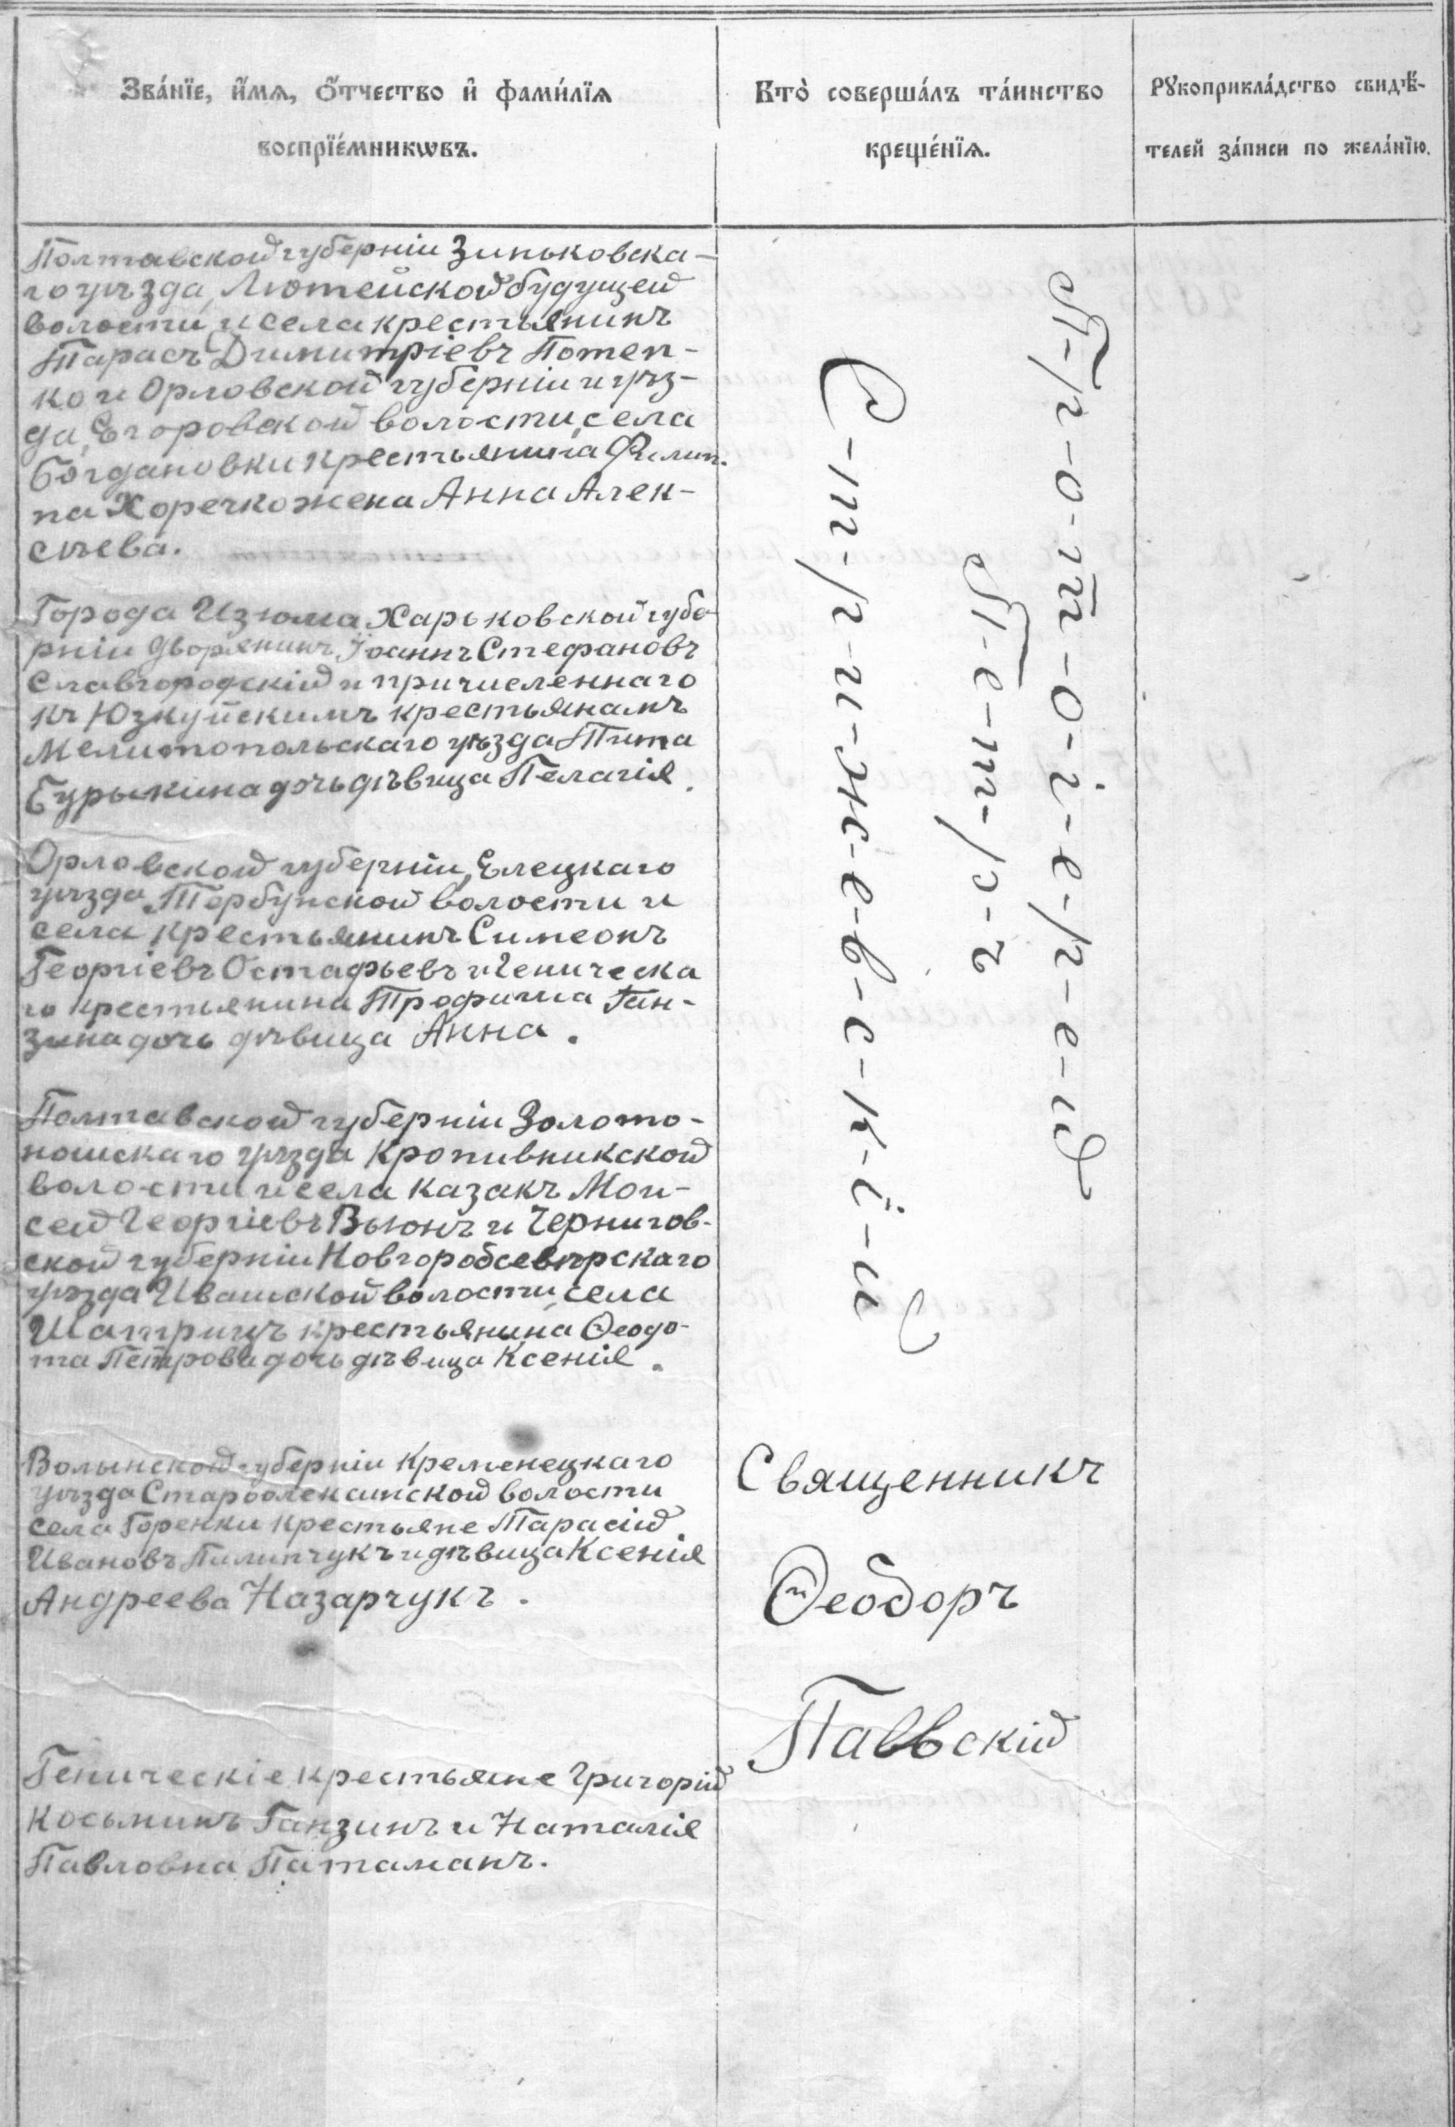 Зва́нїе, и́мѧ, ѻ́тчество и҆ фами́лїѧ
воспрїе́мникѡвъ.
Кто̀ соверша́лъ та́инство
креще́нїѧ.
Рꙋкоприкла́дство свидѣ́-
телей за́писи по жела́нїю.
Полтавской губерніи Зиньковска-
го уѣзда, Лютейской будущей
волости и села крестьянинъ
Тарасъ Димитріевъ Потеп-
ко и Орловской губерніи и уѣз-
да, Егоровской волости, села
Богдановки крестьянина Филип-
па Хоречко жена Анна Алек-
сѣева.
Города Изюма Харьковской губе-
рніи дворянинъ Іоаннъ Стефановъ
Славгородскій и причисленнаго
къ Юзкуйскимъ крестьянамъ
Мелитопольскаго уѣзда Тита
Бурыкина дочь дѣвица Пелагія.
Орловской губерніи, Елецкаго
уѣзда, Тербунской волости и
села крестьянинъ Симеонъ
Георгіевъ Остафьевъ и Геническа
го крестьянина Трофима Ган-
зина дочь дѣвица Анна.
Полтавской губерніи Золото-
ношскаго уѣзда Кропивникской
волости и села казакъ Мои-
сей Георгіевъ Вьюнъ и Чернигов-
ской губерніи Новгородсеверскаго
уѣзда Ивашской волости, села
Шатрищъ крестьянина Ѳеодо-
та Петрова дочь дѣвица Ксенія.
Волынской губерніи Кременецкаго
уѣзда Староолексинской волости
села Горенки крестьяне Тарасій
Ивановъ Пилипчукъ и дѣвица Ксенія
Андреева Назарчукъ.
Геническіе крестьяне Григорій
Косьминъ Ганзинъ и Наталія
Павловна Патаманъ.
П-р-о-т-о-і-е-р-е-й
П-е-т-р-ъ
С-т-р-и-ж-е-в-с-к-і-й
Священникъ
Ѳеодоръ
Паввскій